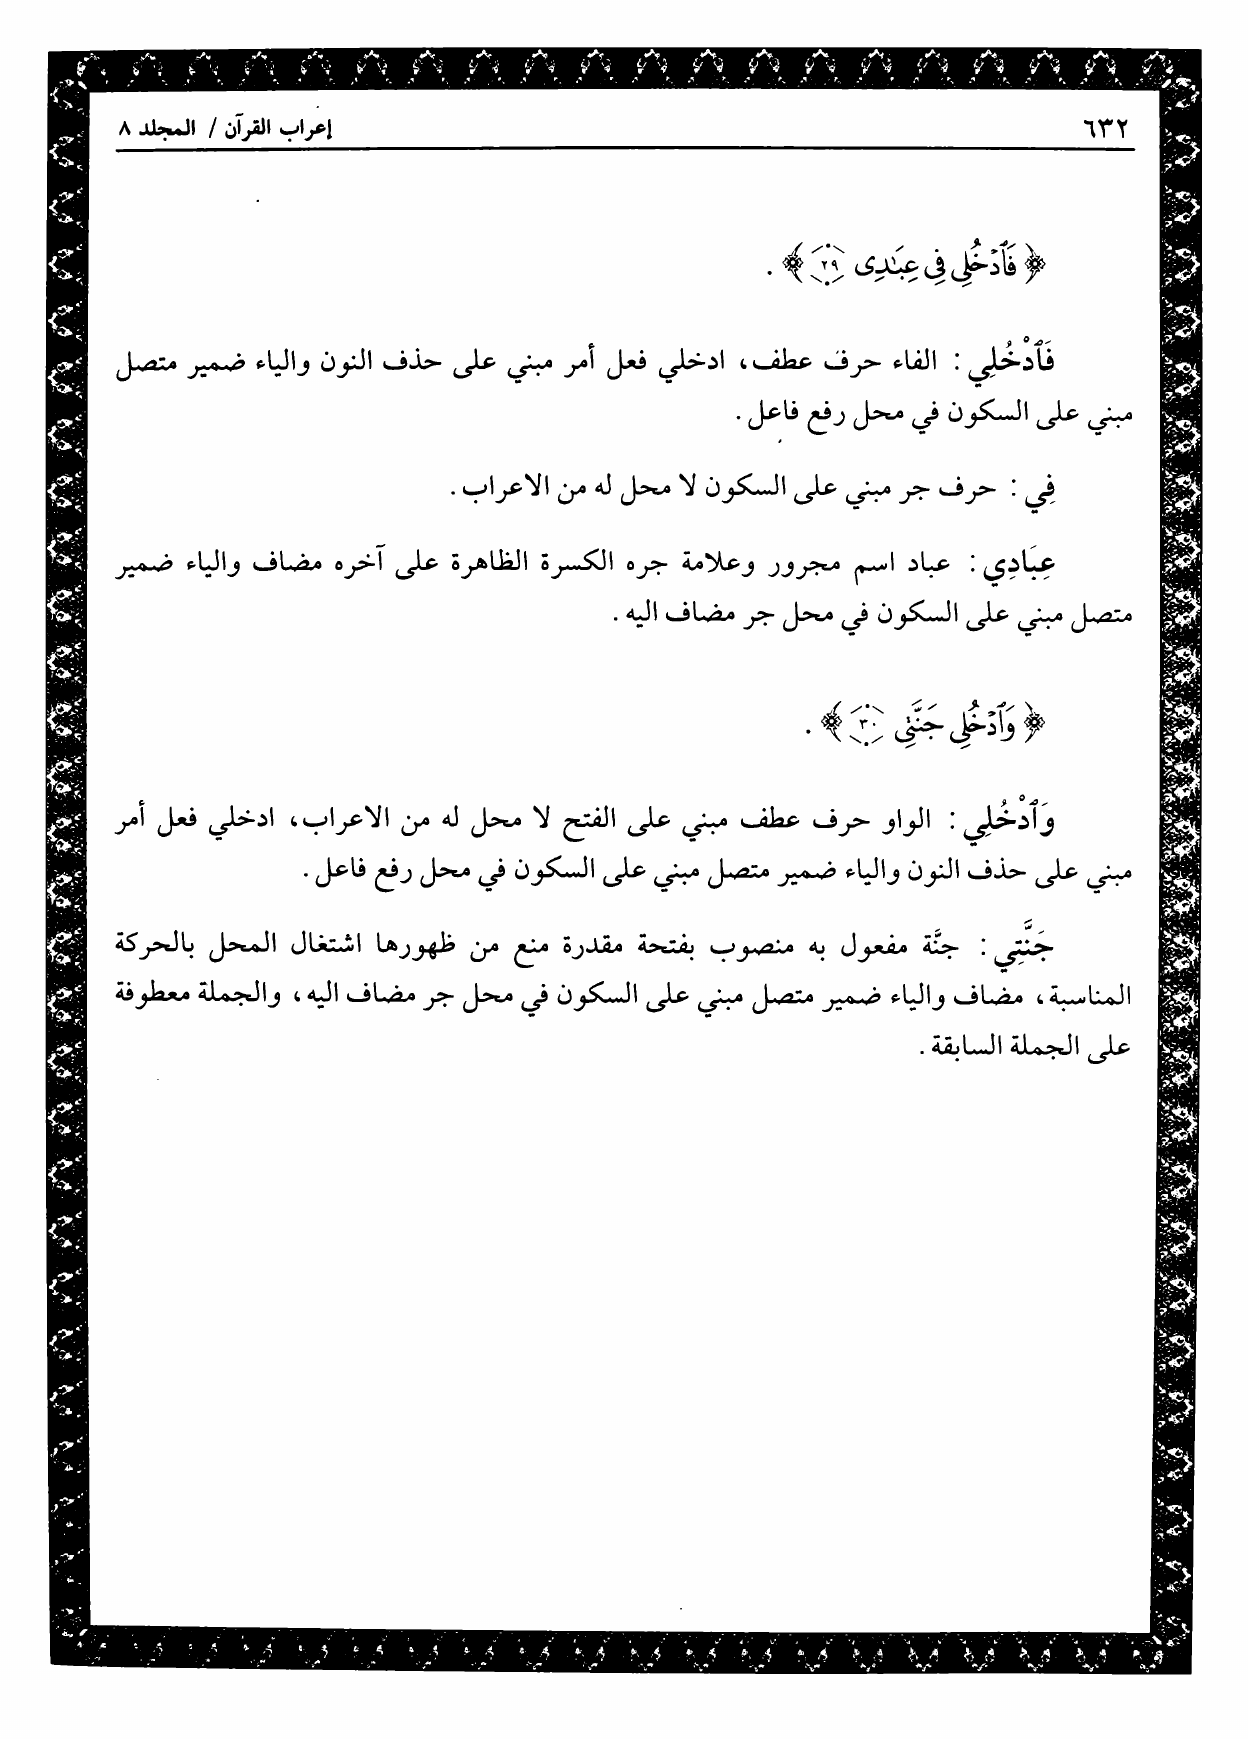 ٦٣٢ إعراب القرآن / المجلد ٨
﴿ فَٱدْخُلِى فِى عِبَـٰدِى ٢٩ ﴾ .
فَٱدْخُلِي : الفاء حرف عطف، ادخلي فعل أمر مبني على حذف النون والياء ضمير متصل
مبني على السكون في محل رفع فاعل .
فِي : حرف جر مبني على السكون لا محل له من الاعراب .
عِبَادِي : عباد اسم مجرور وعلامة جره الكسرة الظاهرة على آخره مضاف والياء ضمير
متصل مبني على السكون في محل جر مضاف اليه .
﴿ وَٱدْخُلِى جَنَّتِى ٣٠ ﴾ .
وَٱدْخُلِي : الواو حرف عطف مبني على الفتح لا محل له من الاعراب، ادخلي فعل أمر
مبني على حذف النون والياء ضمير متصل مبني على السكون في محل رفع فاعل .
جَنَّتِي : جنَّة مفعول به منصوب بفتحة مقدرة منع من ظهورها اشتغال المحل بالحركة
المناسبة، مضاف والياء ضمير متصل مبني على السكون في محل جر مضاف اليه، والجملة معطوفة
على الجملة السابقة .